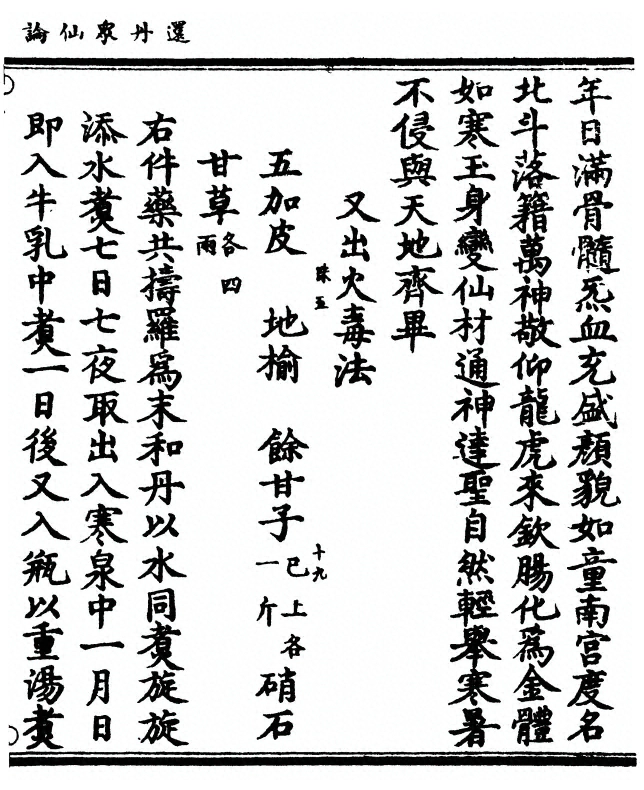 還丹眾仙論
年日滿骨髓炁血充盛顏貌如童南宮度名
北斗落籍萬神敬仰龍虎來欽腸化為金體
如寒玉身變仙材通神達聖自然輕舉寒暑
不侵與天地齊畢
又出火毒法
珠五
十九
五加皮 地榆 餘甘子已上各一斤 硝石
甘草各四兩
右件藥共擣羅為末和丹以水同煑旋旋
添水煑七日七夜取出入寒泉中一月日
即入牛乳中煑一日後又入瓶以重湯煑